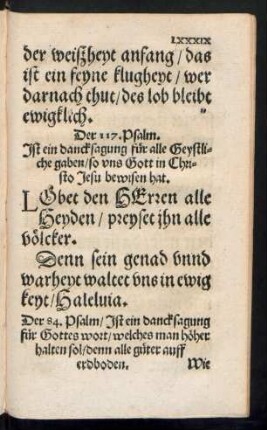 LXXXIX
der weißheyt anfang / das
ist ein feyne klugheyt / wer
darnach thut / des lob bleibt
ewigklich.
Der 117. Psalm.
Ist ein dancksagung für alle Geystli-
che gaben / so vns Gott in Chri-
sto Jesu bewisen hat.
LObet den HErren alle
Heyden / preyset jhn alle
völcker.
Denn sein genad vnnd
warheyt waltet vns in ewig
keyt / Haleluia.
Der 84. Psalm / Ist ein dancksagung
für Gottes wort / welches man höher
halten sol / denn alle güter auff
erdboden.
Wie